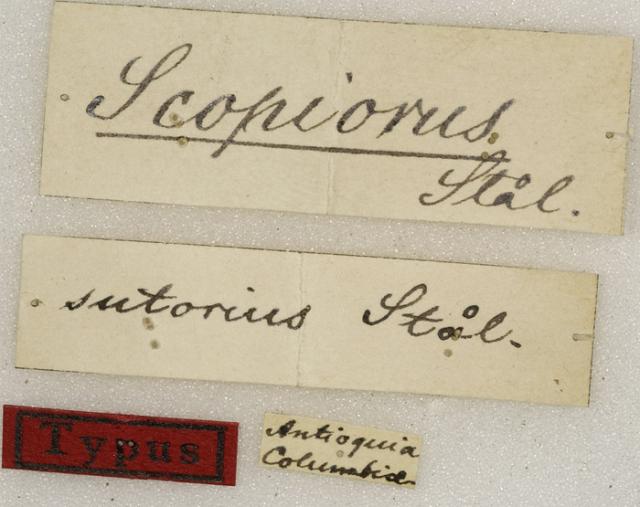 Scopiorus
Stål.
sutorius Stål.
Typus
Antioquia
Columbia